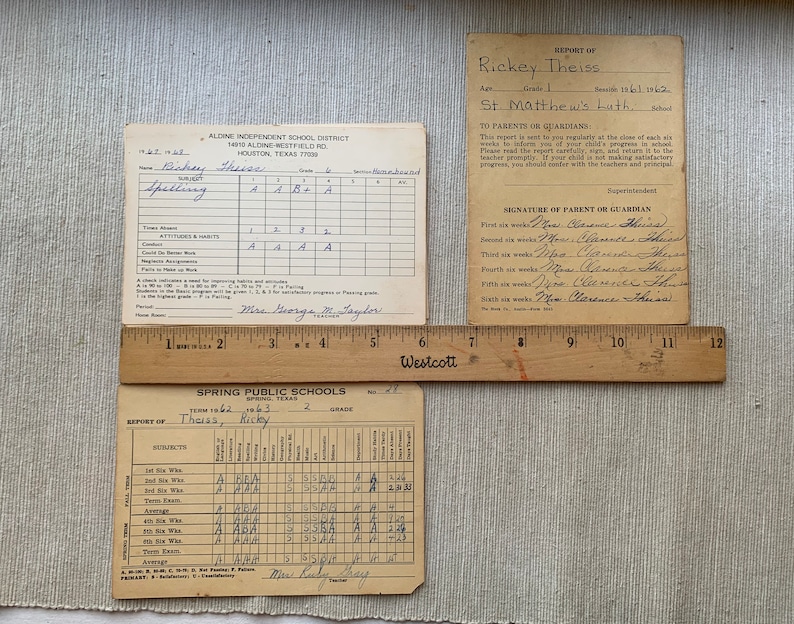 ALDINE INDEPENDENT SCHOOL DISTRICT
14910 ALDINE-WESTFIELD RD.
HOUSTON, TEXAS 77039
1967 1968
Name Rickey Theiss Grade 6 Section Homebound
SUBJECT 1 2 3 4 5 6 AV.
Spelling A A B+ A
Times Absent 1 2 3 2
ATTITUDES & HABITS
Conduct A A A A
Could Do Better Work
Neglects Assignments
Fails to Make up Work
A check indicates a need for improving habits and attitudes
A is 90 to 100 — B is 80 to 89 — C is 70 to 79 — F is Failing
Students in the Basic program will be given 1, 2, & 3 for satisfactory progress or Passing grade.
1 is the highest grade — F is Failing.
Period:
Home Room: Mrs. George M. Taylor
TEACHER
REPORT OF
Rickey Theiss
Age Grade 1 Session 1961 1962
St. Matthew's Luth. School
TO PARENTS OR GUARDIANS:
This report is sent to you regularly at the close of each six
weeks to inform you of your child's progress in school.
Please read the report carefully, sign, and return it to the
teacher promptly. If your child is not making satisfactory
progress, you should confer with the teachers and principal.
Superintendent
SIGNATURE OF PARENT OR GUARDIAN
First six weeks Mrs. Clarence Theiss
Second six weeks Mrs. Clarence Theiss
Third six weeks Mrs. Clarence Theiss
Fourth six weeks Mrs. Clarence Theiss
Fifth six weeks Mrs. Clarence Theiss
Sixth six weeks Mrs. Clarence Theiss
1 2 3 4 5 6 7 8 9 10 11 12
MADE IN U.S.A.
Westcott
SPRING PUBLIC SCHOOLS
SPRING, TEXAS
No. 29
TERM 1962 1963 2 GRADE
REPORT OF Theiss, Ricky
SUBJECTS English or Language Literature Reading Spelling Writing Civics History Geography Physical Ed. Health Music Art Arithmetic Science Deportment Study Habits Times Tardy Days Absent Days Present Days Taught
FALL TERM
1st Six Wks.
2nd Six Wks.
3rd Six Wks.
Term Exam.
Average
SPRING TERM
4th Six Wks.
5th Six Wks.
6th Six Wks.
Term Exam.
Average
A, 90-100; B, 80-89; C, 70-79; D, Not Passing; F, Failure.
PRIMARY: S - Satisfactory; U - Unsatisfactory
Teacher